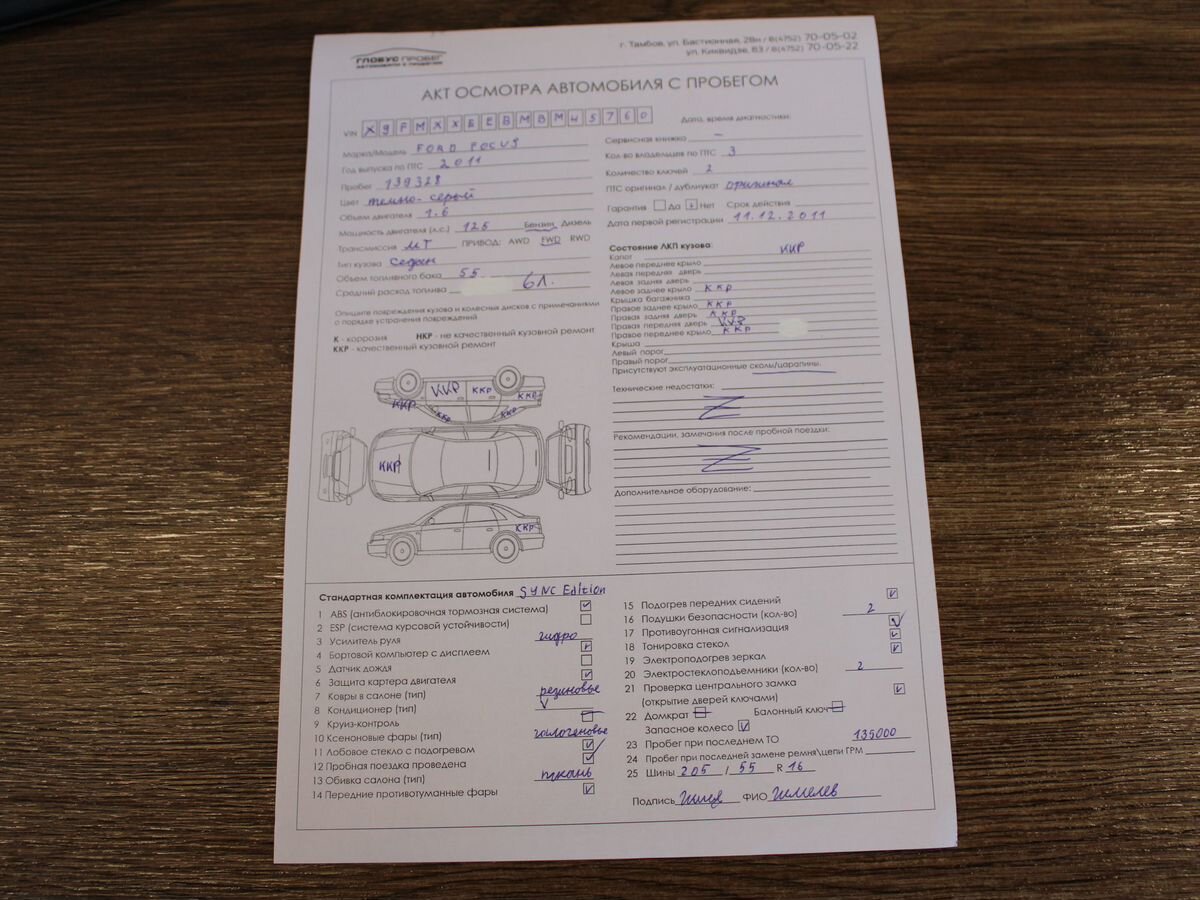 ГЛОБУС ПРОБЕГ
АВТОМОБИЛИ С ПРОБЕГОМ
г. Тамбов, ул. Бастионная, 28н / 8(4752) 70-05-02
ул. Киквидзе, 83 / 8(4752) 70-05-22
АКТ ОСМОТРА АВТОМОБИЛЯ С ПРОБЕГОМ
VIN X9FMXXEEBMBM45760
Дата, время диагностики:
Марка/Модель FORD FOCUS
Год выпуска по ПТС 2011
Пробег 139328
Цвет темно-серый
Объем двигателя 1.6
Мощность двигателя (л.с.) 125 Бензин Дизель
Трансмиссия МТ ПРИВОД: AWD FWD RWD
Тип кузова Седан
Объем топливного бака 55
Средний расход топлива 6л.
Сервисная книжка –
Кол-во владельцев по ПТС 3
Количество ключей 2
ПТС оригинал / дубликат оригинал
Гарантия Да Нет Срок действия
Дата первой регистрации 11.12.2011
Опишите повреждения кузова и колесных дисков с примечаниями
о порядке устранения повреждений
К - коррозия НКР - не качественный кузовной ремонт
ККР - качественный кузовной ремонт
ККР ККР ККР
ККР ККР ККР
ККР
ККР
Состояние ЛКП кузова:
Капот ККР
Левое переднее крыло
Левая передняя дверь
Левая задняя дверь
Левое заднее крыло ККР
Крышка багажника
Правое заднее крыло ККР
Правая задняя дверь ККР
Правая передняя дверь ККР
Правое переднее крыло ККР
Крыша
Левый порог
Правый порог
Присутствуют эксплуатационные сколы/царапины.
Технические недостатки: Z
Рекомендации, замечания после пробной поездки: Z
Дополнительное оборудование:
Стандартная комплектация автомобиля SYNC Edition
1 ABS (антиблокировочная тормозная система)
2 ESP (система курсовой устойчивости)
3 Усилитель руля гидро
4 Бортовой компьютер с дисплеем
5 Датчик дождя
6 Защита картера двигателя
7 Ковры в салоне (тип) резиновые
8 Кондиционер (тип) V
9 Круиз-контроль
10 Ксеноновые фары (тип) галогеновые
11 Лобовое стекло с подогревом
12 Пробная поездка проведена
13 Обивка салона (тип) ткань
14 Передние противотуманные фары
15 Подогрев передних сидений
16 Подушки безопасности (кол-во) 2
17 Противоугонная сигнализация
18 Тонировка стекол
19 Электроподогрев зеркал
20 Электростеклоподъемники (кол-во) 2
21 Проверка центрального замка
(открытие дверей ключами)
22 Домкрат Балонный ключ
Запасное колесо
23 Пробег при последнем ТО 135000
24 Пробег при последней замене ремня\цепи ГРМ
25 Шины 205 / 55 R 16
Подпись ФИО Шмелев